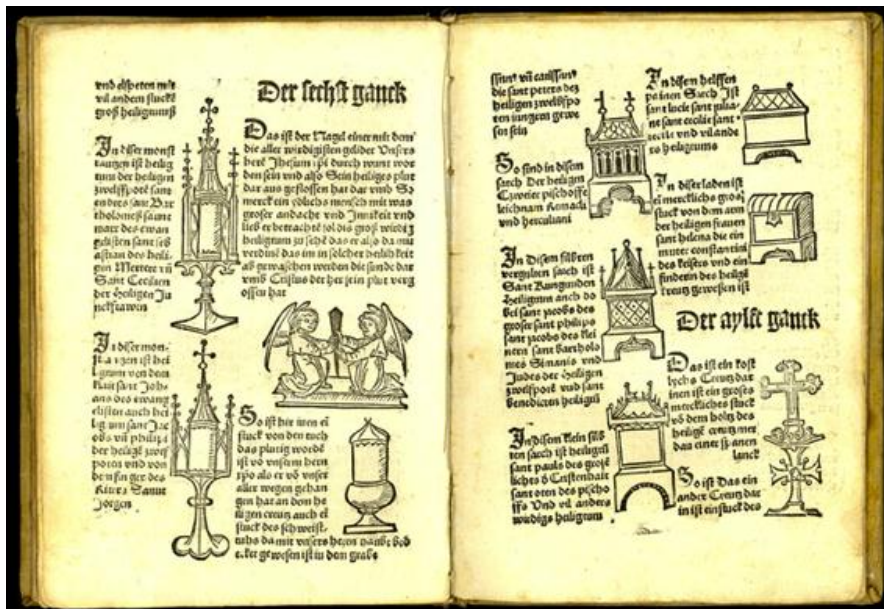 vnd elspeten mit
vil andern stucke
groß heiligtumß
In diser monst
rantzen ist heilig
tum der heiligen
zwelffpotē sant
endres sant Bar
tholomeß sannt
marx des ewan
gelisten sant seb
astian des heili
gen Mertrer vn̄
Sant Cecilien
der heiligen Ju
nckfrawen
In diser mon-
ist hei
ligtum von dem
sant Joh-
ans des ewang
elisten auch hei
lig
der heiligē zwelf
poten vnd von
dem finger des
Ritters Sannt
Jorgen
Der sechst ganck
Das ist der Nagel einer mit dem
die aller wirdigisten gelider Vnsers
herē Jhesum xp̄i durch wunt wor
den sein vnd also Sein heiliges plut
dar aus geflossen hat dar vmb So
merck ein ydlichs mensch mit was
groser andacht vnd Innikeit vnd
lieb er betrachtē sol dis groß wirdig
heiligtum zu sehē das er also da mit
verdine das im in solcher heilikeit
ab gewaschen werden die sunde dar
vmb Cristus der her sein plut verg
ossen hat
So ist hir inen eī
stuck von den tuch
das plutig wordē
ist vō vnserm hern
xp̄o als er vō vnser
aller wegen gehan
gen hat an dem he
iligen creutz auch eī
stuck des schweist
tuchs da mit vnsers heren haubt bed
ecket gewesen ist in dem grabe
die sant peters des
heiligen zwelfpo
ten iungern gewe
sen sein
So sind in disem
sarch Der heiligen
Zweier pischoffe
leichnam Remacli
vnd herculiani
In Disem silbren
vergulten sarch ist
Sant Kungunden
heiligtum auch do
bei sant jacobs des
groser sant philips
sant jacobs des klei
nern sant bartholo
mes Simonis vnd
Judes der heiligen
zwelfpotē vnd sant
benedicten heiligtū
In disem klein silb
ren sarch ist heiligtū
sant pauls des
lichts d Cristenhait
sant oten des pischo
ffs Vnd vil anders
wirdigs heiligtum
In disem helffen
painen Sarch Ist
sant lucie sant julia-
ne sant cecilie sant
vnd vil ande
rs heiligtums
In diser laden ist
eī mercklichs gros
stuck von dem arm
der heiligen frauen
sant helena die ein
muter constantini
des keisers vnd ein
finderin des heilige
creutz gewesen ist
Der aylft ganck
Das ist ein kost
lichs Creutz dar
inen ist ein groses
merckliches stuck
vō dem holtz des
heilige creutz mer
dan einer spanen
lanck
So ist Das ein
ander Creutz dar
in ist ein stuck des